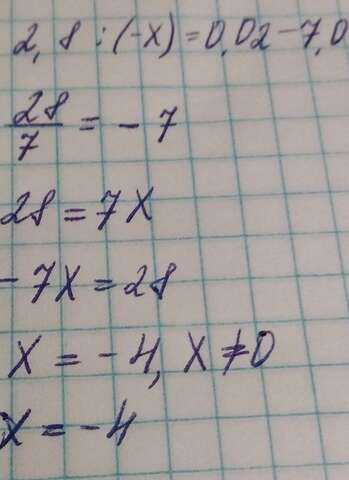 2,8:(-x)=0,02-7,0
28/7 = -7
28=7x
-7x=28
x=-4, x≠0
x=-4